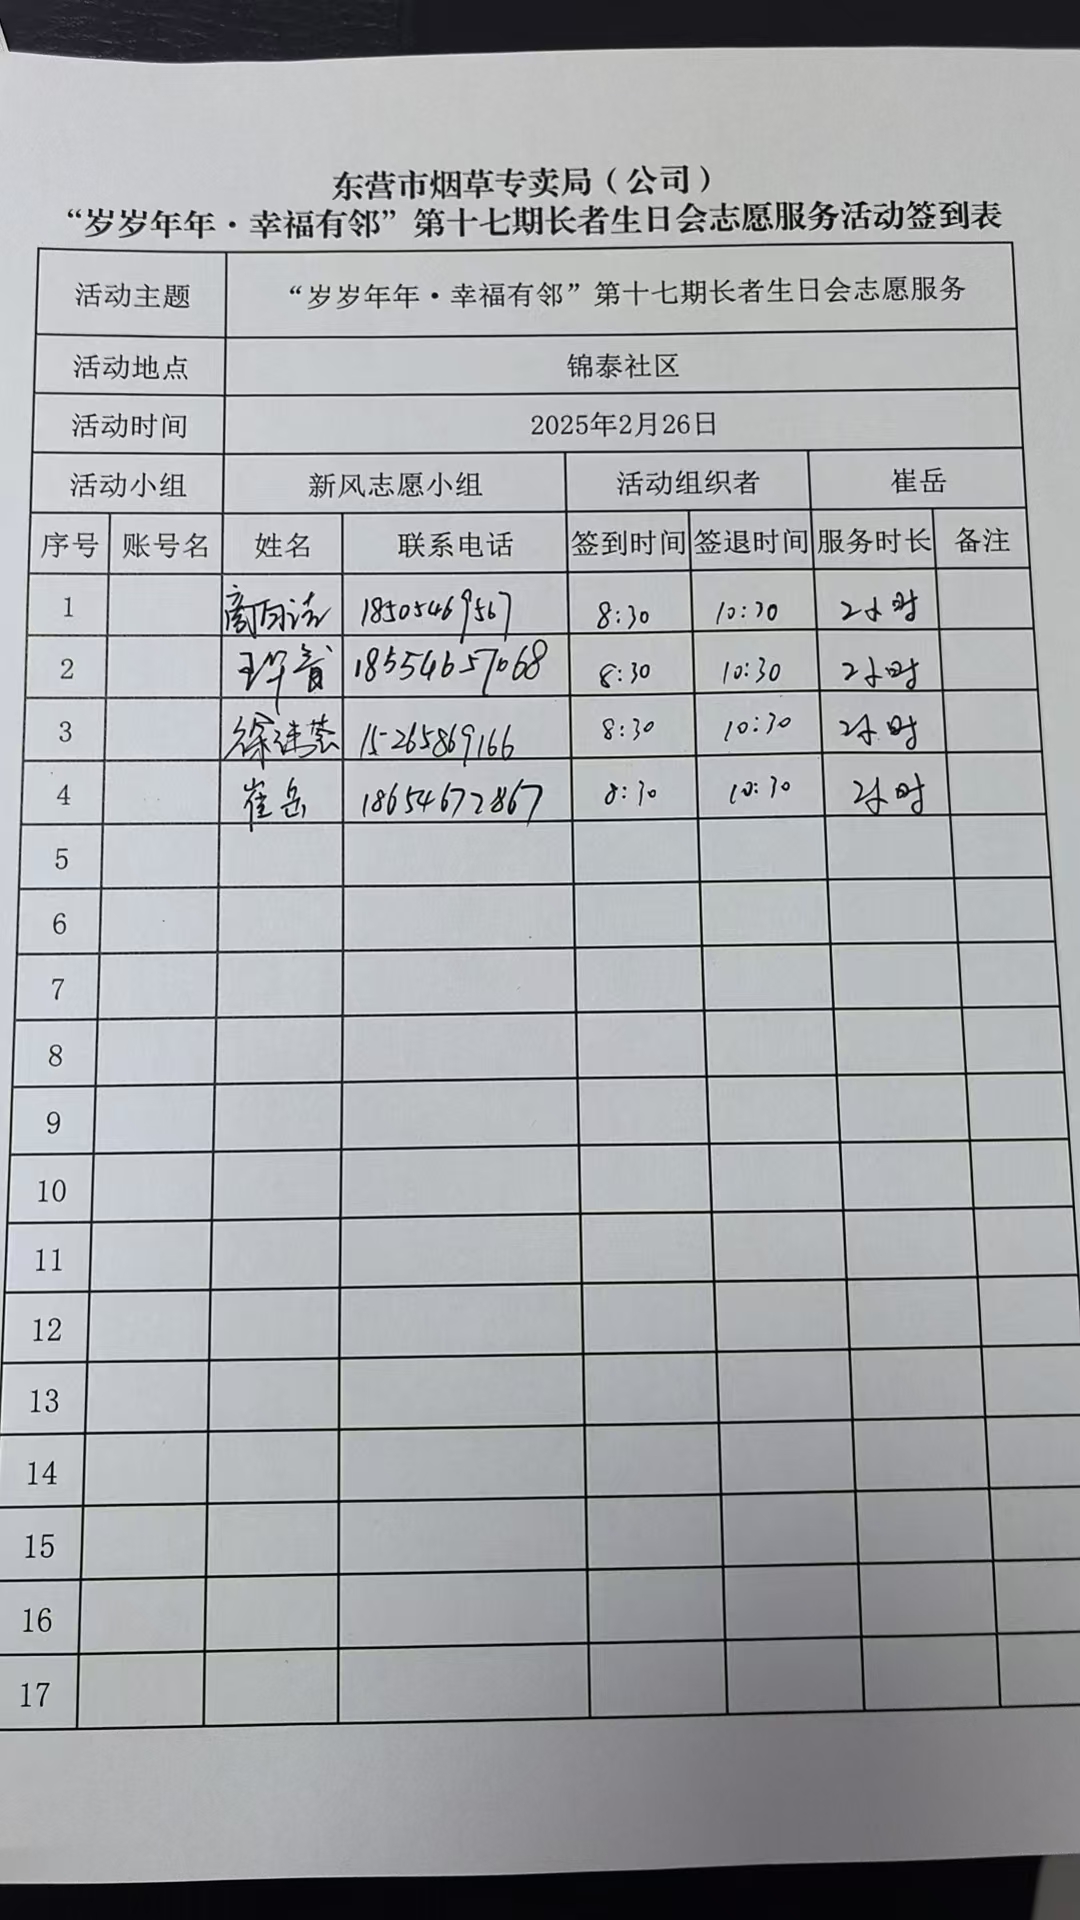 东营市烟草专卖局（公司）
“岁岁年年·幸福有邻”第十七期长者生日会志愿服务活动签到表
活动主题 “岁岁年年·幸福有邻”第十七期长者生日会志愿服务
活动地点 锦泰社区
活动时间 2025年2月26日
活动小组 新风志愿小组 活动组织者 崔岳
序号 账号名 姓名 联系电话 签到时间 签退时间 服务时长 备注
1 18505469567 8:30 10:30 2小时
2 18554657068 8:30 10:30 2小时
3 15265869166 8:30 10:30 2小时
4 崔岳 18654672867 8:30 10:30 2小时
5
6
7
8
9
10
11
12
13
14
15
16
17